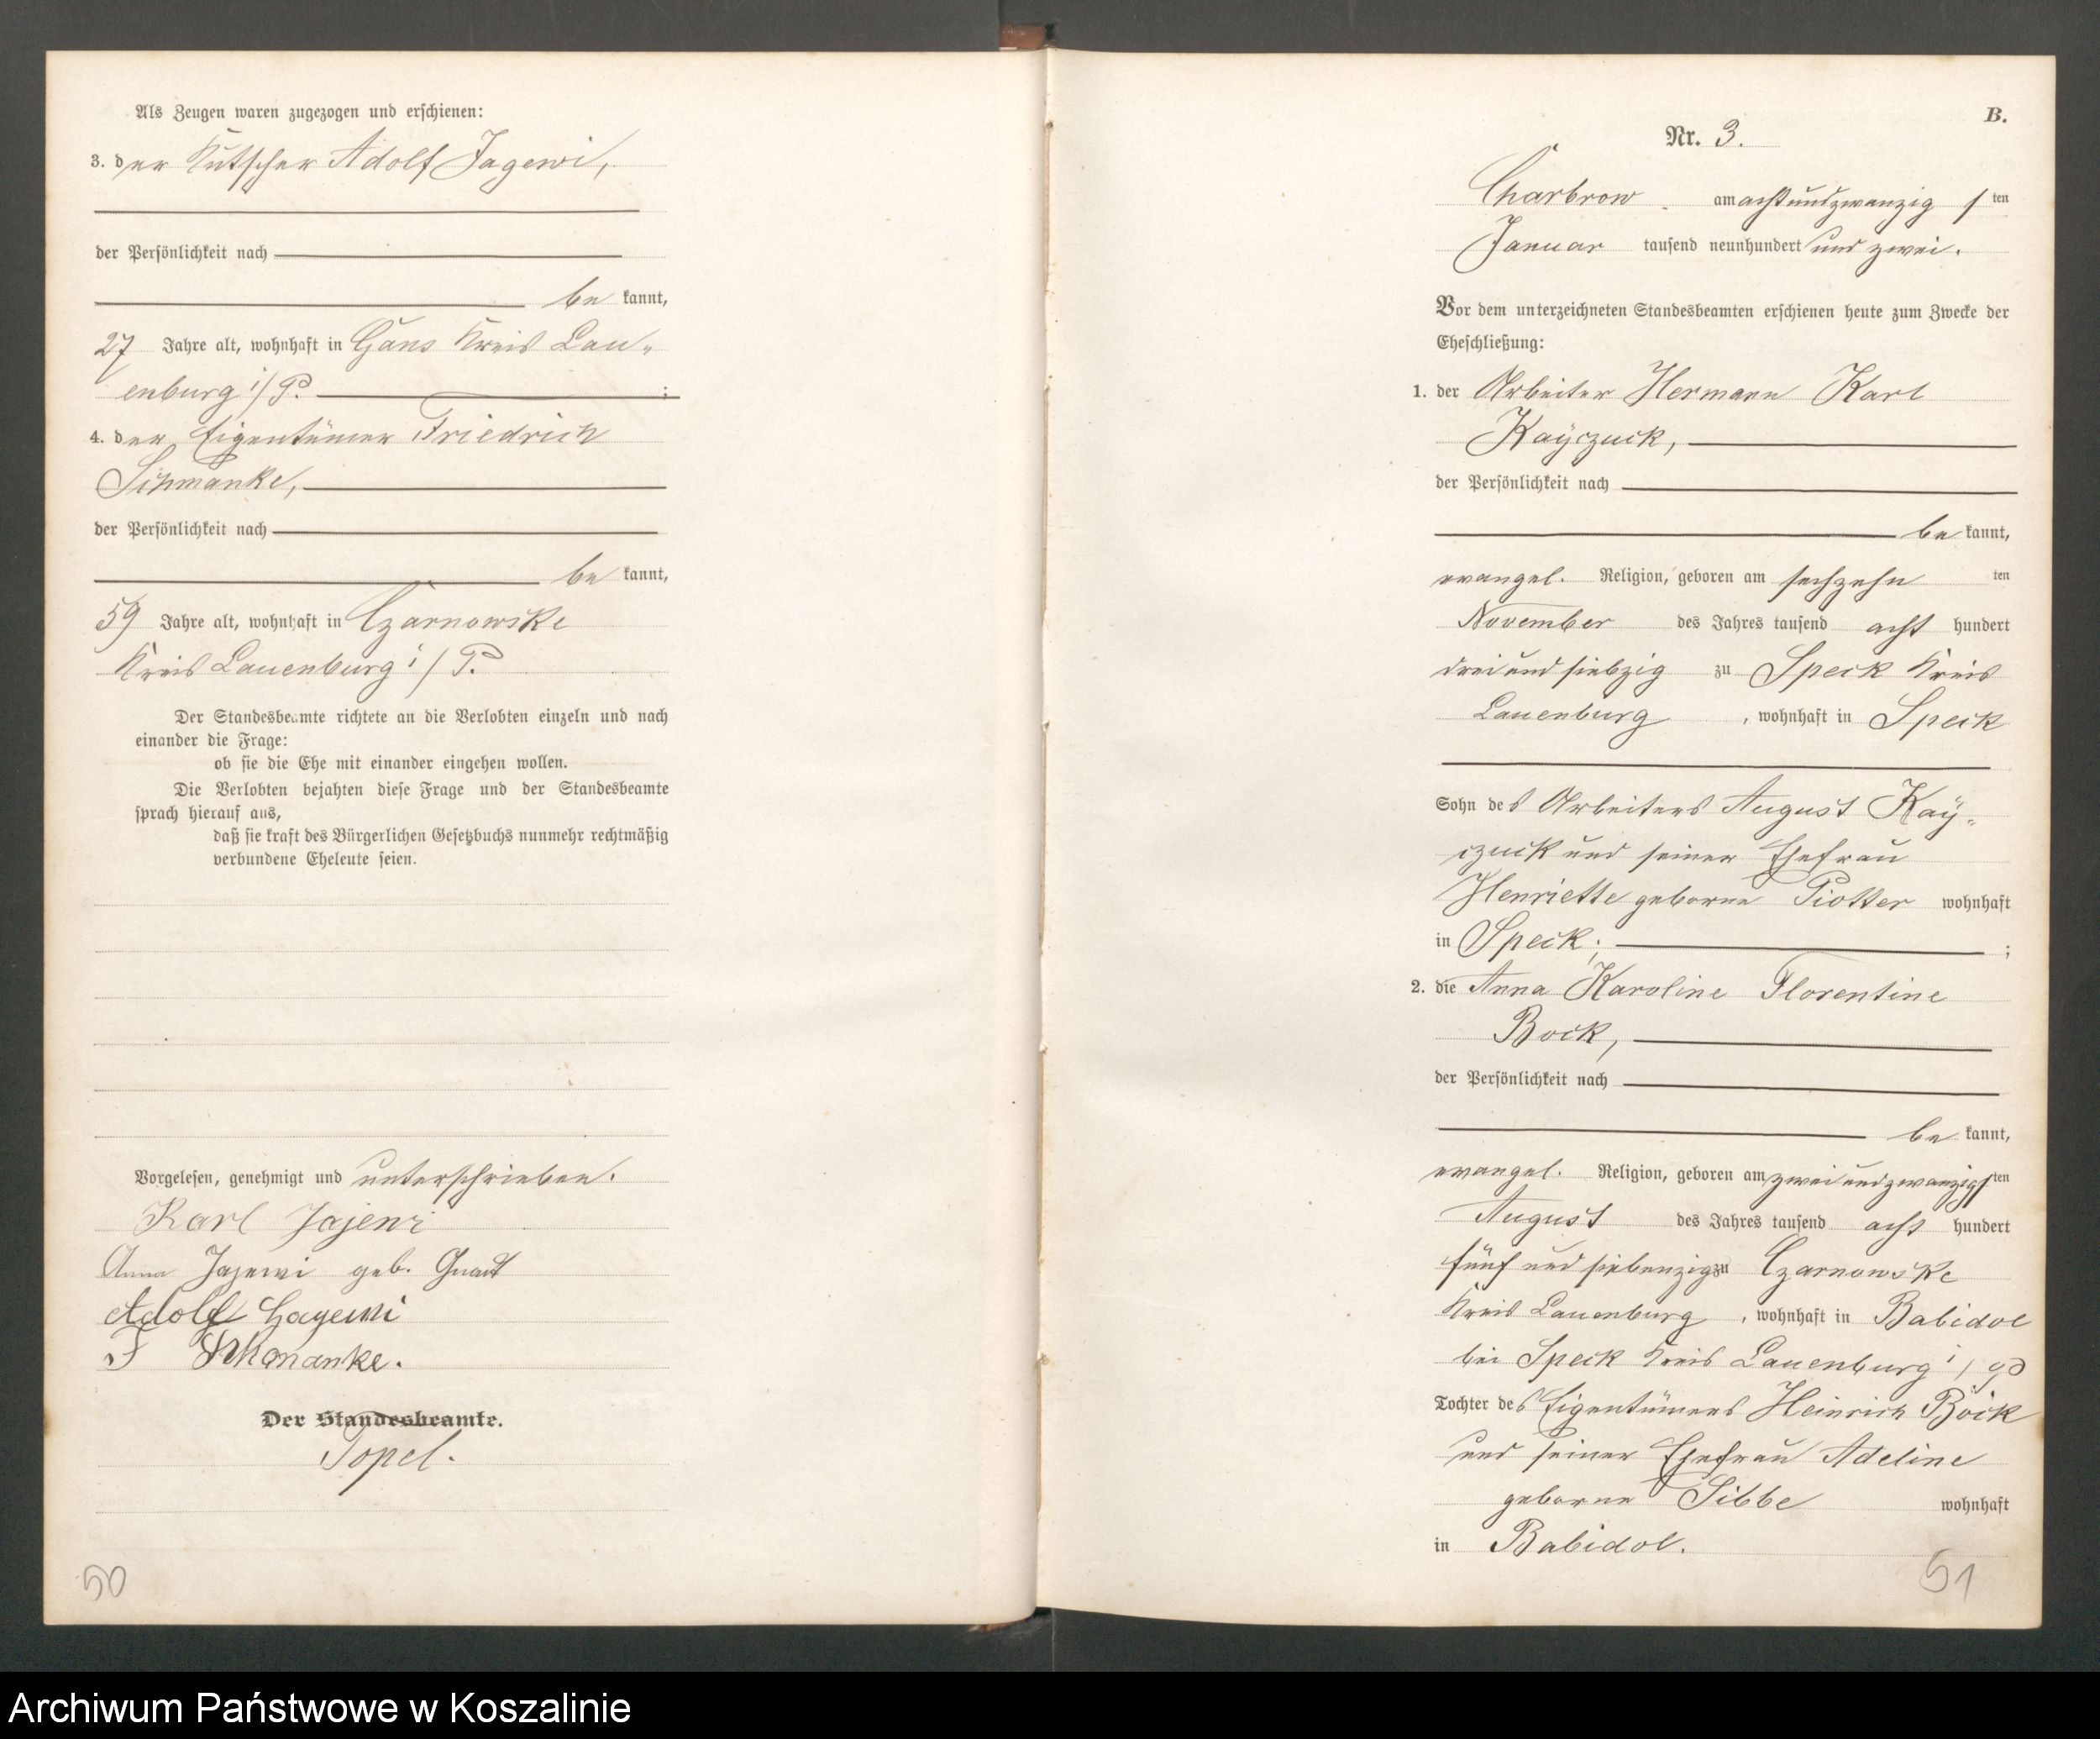 Als Zeugen waren zugezogen und erschienen:
3. der Kutscher Adolf Jagewi,
der Persönlichkeit nach
be kannt,
27 Jahre alt, wohnhaft in Gans Kreis Lau-
enburg i/P. ;
4. der Eigentümer Friedrich
Schmanke,
der Persönlichkeit nach
be kannt,
59 Jahre alt, wohnhaft in Czarnowske
Kreis Lauenburg i/P.
Der Standesbeamte richtete an die Verlobten einzeln und nach
einander die Frage:
ob sie die Ehe mit einander eingehen wollen.
Die Verlobten bejahten diese Frage und der Standesbeamte
sprach hierauf aus,
daß sie kraft des Bürgerlichen Gesetzbuchs nunmehr rechtmäßig
verbundene Eheleute seien.
Vorgelesen, genehmigt und unterschrieben.
Karl Jajewi
Anna Jajewi geb.
Adolf Gagewi
F Schmanke.
Der Standesbeamte.
Topel.
50
B.
Nr. 3.
Charbrow am achtundzwanzig s ten
Januar tausend neunhundert und zwei.
Vor dem unterzeichneten Standesbeamten erschienen heute zum Zwecke der
Eheschließung:
1. der Arbeiter Hermann Karl
Kayczuck,
der Persönlichkeit nach
be kannt,
evangel. Religion, geboren am sechzehn ten
November des Jahres tausend acht hundert
dreiundsiebzig zu Speck Kreis
Lauenburg , wohnhaft in Speck
Sohn des Arbeiters August Kay-
czuck und seiner Ehefrau
Henriette geborne Piotter wohnhaft
in Speck. ;
2. die Anna Karoline Florentine
Bock,
der Persönlichkeit nach
be kannt,
evangel. Religion, geboren am zweiundzwanzigsten
August des Jahres tausend acht hundert
fünf und siebenzig zu Czarnowske
Kreis Lauenburg , wohnhaft in Babidol
bei Speck Kreis Lauenburg i/P
Tochter des Eigentümers Heinrich Bock
und seiner Ehefrau Adeline
geborne Sibbe wohnhaft
in Babidol.
51
Archiwum Państwowe w Koszalinie